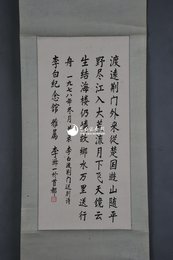 渡遠荆门外来從楚国遊山随平
野尽江入大荒流月下飞天镜云
生结海楼仍憐故鄉水万里送行
舟 一九七八年冬月 李白渡荆门送别诗
李白纪念館 雅属 李 於首都